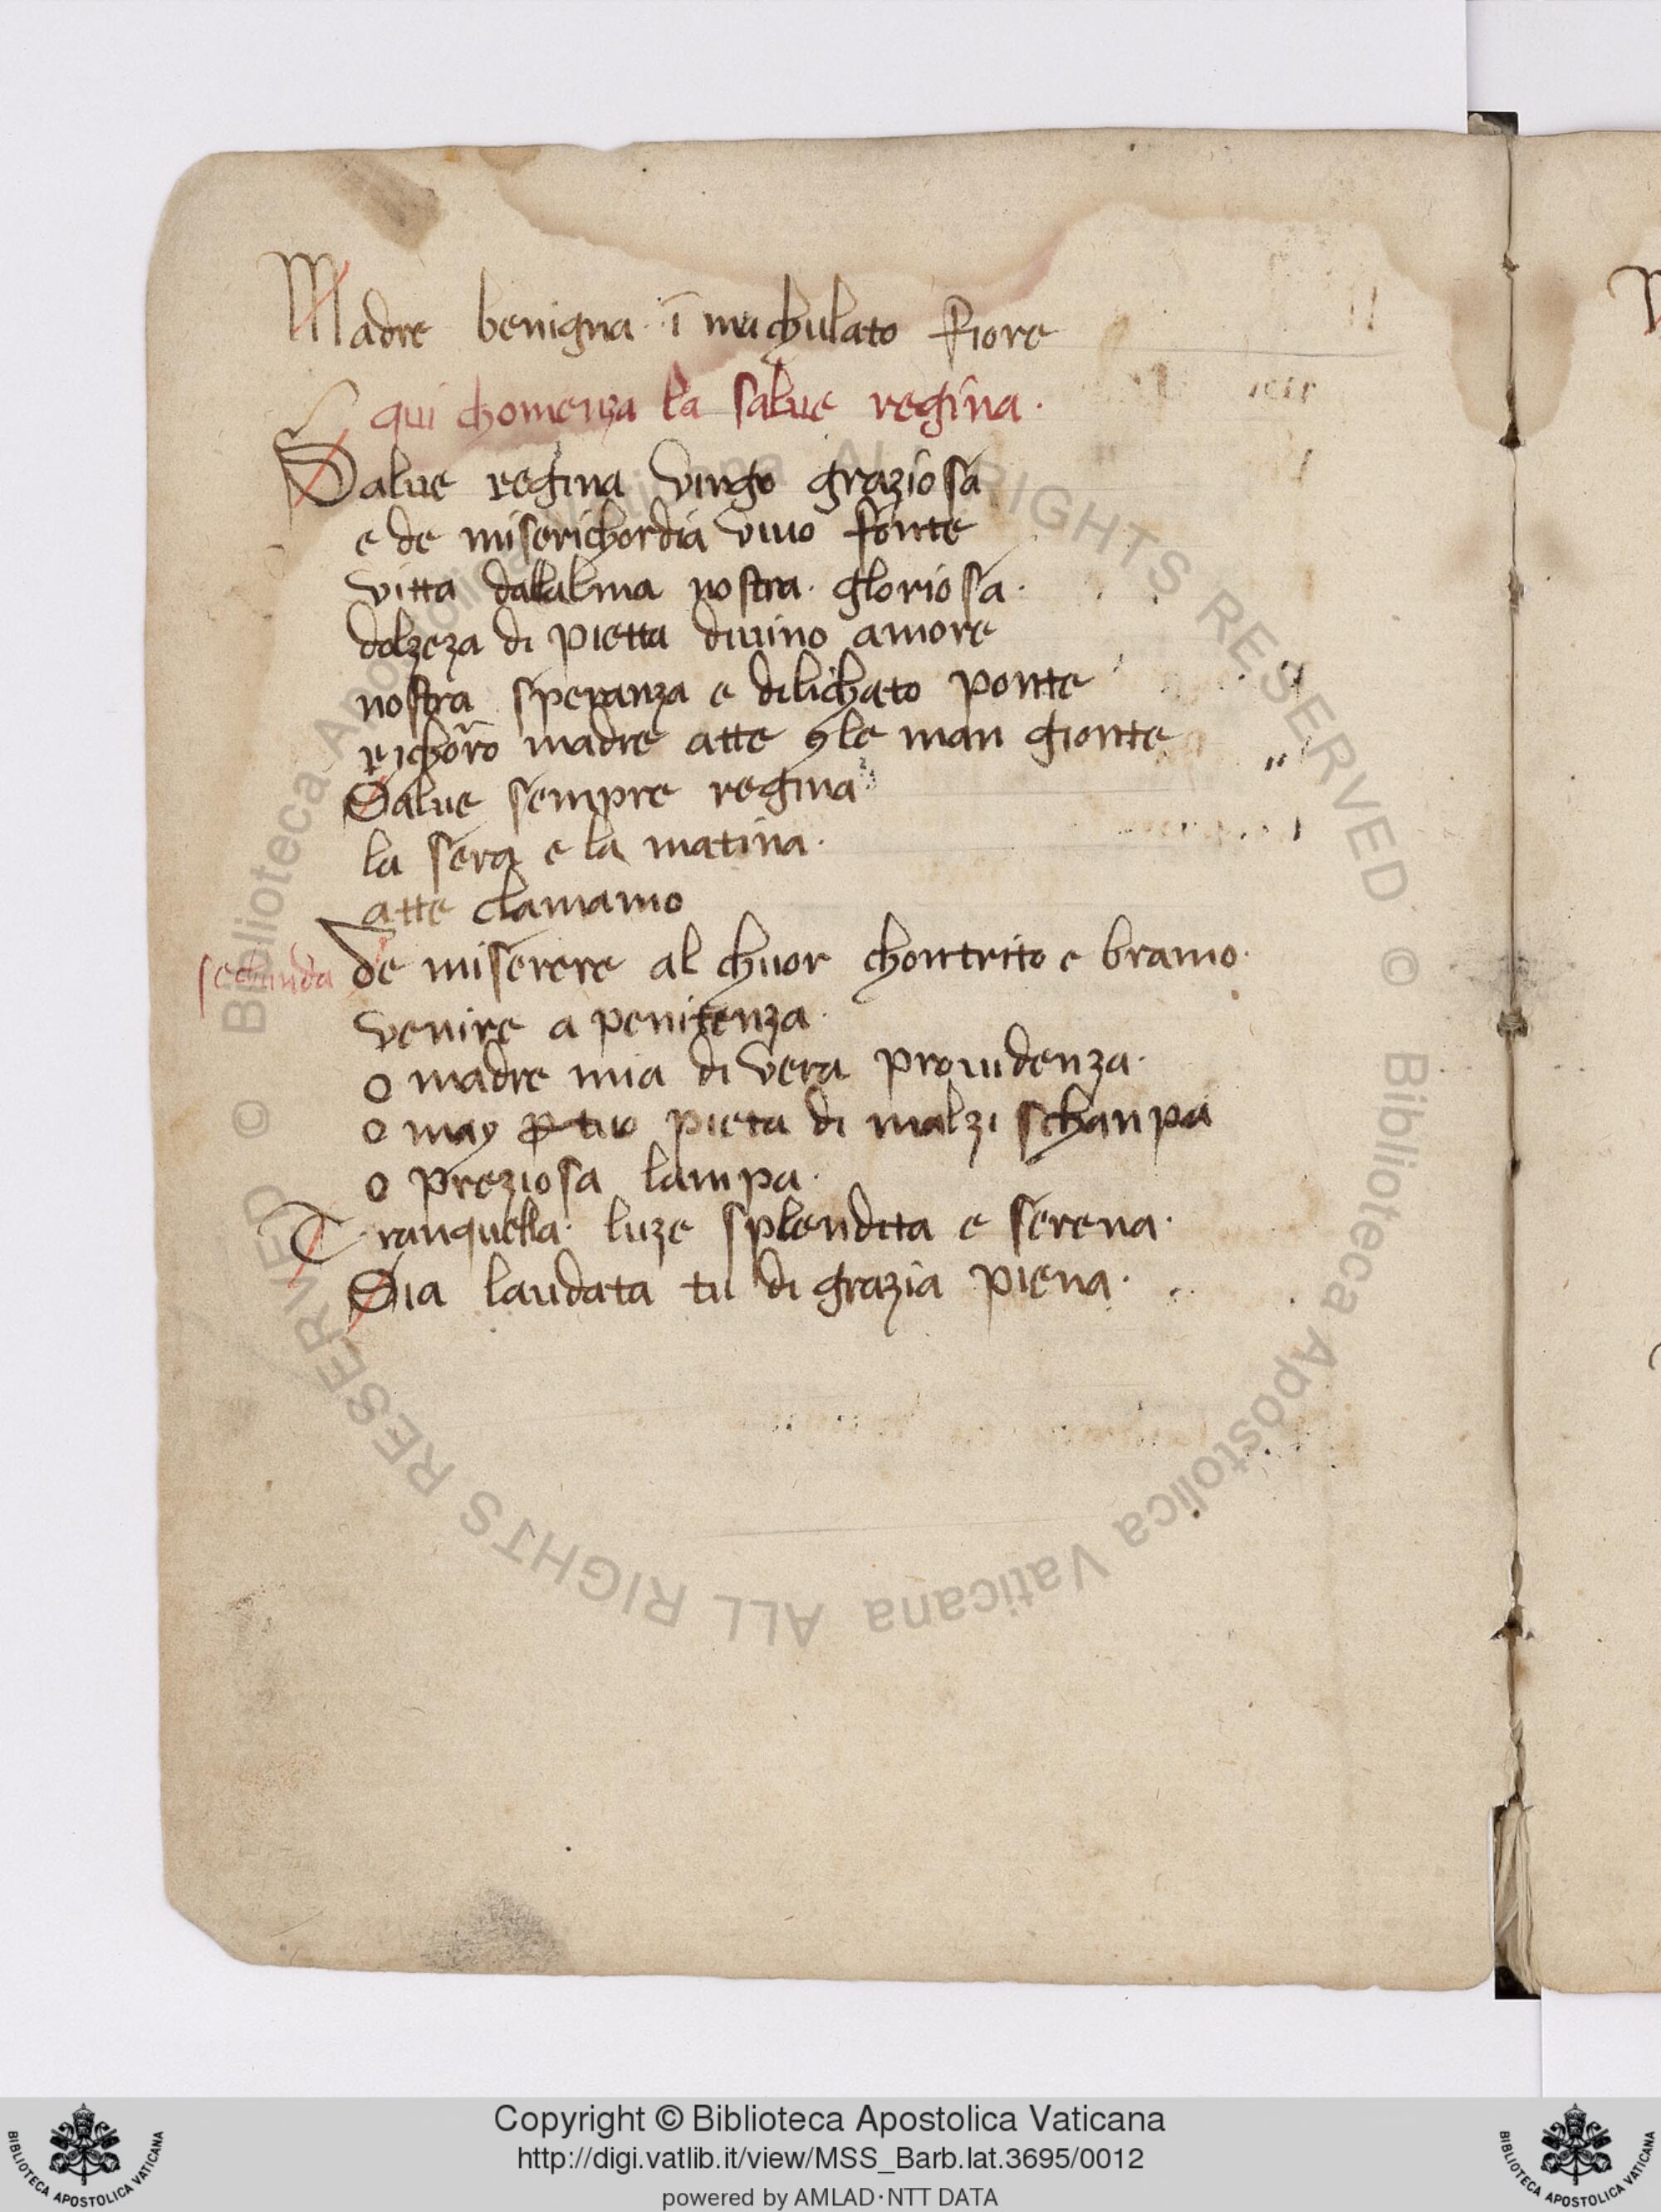 Madre benigna · ī machulato fiore
qui chomenza la salue regina ·
Salue regina virgo graziosa
e de miserichordia viuo fonte
vitta dallalma nostra · gloriosa ·
dolzeza di pietta diuino amore
nostra speranza e dilichato ponte
richor̄o madre atte ꝯle man gionte
Salue sempre regina
la sera e la matina ·
atte clamamo
sechunda de miserere al chuor chontrito e bramo ·
venire a penitenza ·
o madre mia di vera prouidenza ·
o may ꝑ tuo pieta di malzi schanpa
o preziosa lampa ·
Tranquella · luze splendita e serena ·
Sia laudata tu di grazia piena ·
© Biblioteca Apostolica Vaticana ALL RIGHTS RESERVED © Biblioteca Apostolica Vaticana ALL RIGHTS RESERVED
Copyright © Biblioteca Apostolica Vaticana
http://digi.vatlib.it/view/MSS_Barb.lat.3695/0012
powered by AMLAD·NTT DATA
BIBLIOTECA APOSTOLICA VATICANA
BIBLIOTECA APOSTOLICA VATICANA